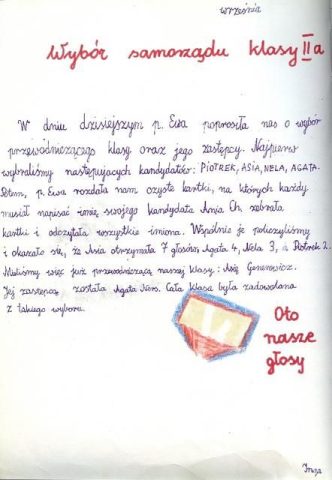 września
Wybór samorządu klasy II a
W dniu dzisiejszym p. Ewa poprosiła nas o wybór
przewodniczącego klasy oraz jego zastępcy. Najpierw
wybraliśmy następujących kandydatów: PIOTREK, ASIA, NELA, AGATA.
Potem, p. Ewa rozdała nam czyste kartki, na których każdy
musiał napisać imię swojego kandydata. Ania Ch. zebrała
kartki i odczytała wszystkie imiona. Wspólnie je policzyliśmy
i okazało się, że Asia otrzymała 7 głosów, Agata 4, Nela 3, a Piotrek 2.
Mieliśmy więc już przewodniczącą naszej klasy: Asię
Jej zastępcą została Agata Cała klasa była zadowolona
z takiego wyboru.
Oto
nasze
głosy